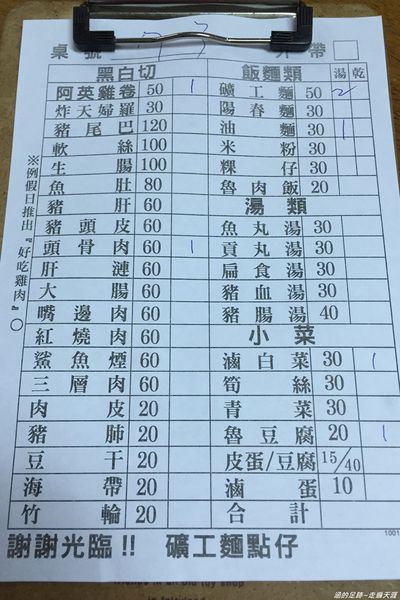 桌號 外帶
黑白切
阿英雞卷 50 1
炸天婦羅 30
豬尾巴 120
軟絲 100
生腸 100
魚肚 80
豬肝 60
豬頭皮 60
頭骨肉 60 1
肝連 60
大腸 60
嘴邊肉 60
紅燒肉 60
鯊魚煙 60
三層肉 60
肉皮 20
豬肺 20
豆干 20
海帶 20
竹輪 20
飯麵類 湯 乾
礦工麵 50 2
陽春麵 30
油麵 30 1
米粉 30
粿仔 30
魯肉飯 20
湯類
魚丸湯 30
貢丸湯 30
扁食湯 30
豬血湯 30
豬腸湯 40
小菜
滷白菜 30 1
筍絲 30
青菜 30
魯豆腐 20 1
皮蛋/豆腐 15/40
滷蛋 10
合計
※例假日推出『好吃雞肉』○
1001
謝謝光臨!! 礦工麵點仔
涵的足跡~走遍天涯